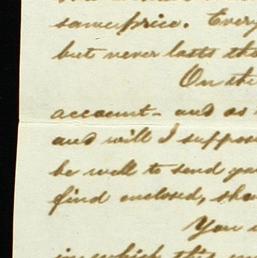 same price. Every
but never lasts the
On the
account - and as
and will I suppose
be well to send you
find enclosed, sha
You
in which this